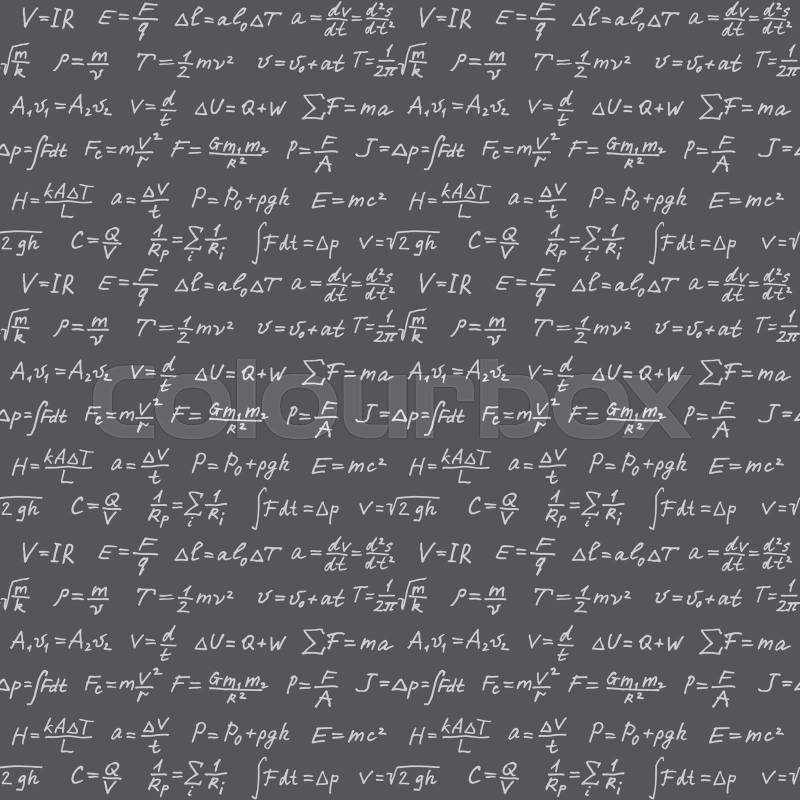 V=IR E=F/q Δl=αl₀ΔT a=dv/dt=d²s/dt² V=IR E=F/q Δl=αl₀ΔT a=dv/dt=d²s/dt²
√m/k ρ=m/v T=1/2mv² v=v₀+at T=1/2π√m/k ρ=m/v T=1/2mv² v=v₀+at T=1/2π
A₁v₁=A₂v₂ v=d/t ΔU=Q+W ΣF=ma A₁v₁=A₂v₂ v=d/t ΔU=Q+W ΣF=ma
Δp=∫Fdt Fc=mv²/r F=Gm₁m₂/R² P=F/A J=Δp=∫Fdt Fc=mv²/r F=Gm₁m₂/R² P=F/A J=
H=kAΔT/L a=Δv/t P=P₀+ρgh E=mc² H=kAΔT/L a=Δv/t P=P₀+ρgh E=mc²
2gh C=Q/V 1/Rp=Σi 1/Ri ∫Fdt=Δp v=√2gh C=Q/V 1/Rp=Σi 1/Ri ∫Fdt=Δp v=√
V=IR E=F/q Δl=αl₀ΔT a=dv/dt=d²s/dt² V=IR E=F/q Δl=αl₀ΔT a=dv/dt=d²s/dt²
√m/k ρ=m/v T=1/2mv² v=v₀+at T=1/2π√m/k ρ=m/v T=1/2mv² v=v₀+at T=1/2π
A₁v₁=A₂v₂ v=d/t ΔU=Q+W ΣF=ma A₁v₁=A₂v₂ v=d/t ΔU=Q+W ΣF=ma
colourbox
Δp=∫Fdt Fc=mv²/r F=Gm₁m₂/R² P=F/A J=Δp=∫Fdt Fc=mv²/r F=Gm₁m₂/R² P=F/A J=
H=kAΔT/L a=Δv/t P=P₀+ρgh E=mc² H=kAΔT/L a=Δv/t P=P₀+ρgh E=mc²
2gh C=Q/V 1/Rp=Σi 1/Ri ∫Fdt=Δp v=√2gh C=Q/V 1/Rp=Σi 1/Ri ∫Fdt=Δp v=√
V=IR E=F/q Δl=αl₀ΔT a=dv/dt=d²s/dt² V=IR E=F/q Δl=αl₀ΔT a=dv/dt=d²s/dt²
√m/k ρ=m/v T=1/2mv² v=v₀+at T=1/2π√m/k ρ=m/v T=1/2mv² v=v₀+at T=1/2π
A₁v₁=A₂v₂ v=d/t ΔU=Q+W ΣF=ma A₁v₁=A₂v₂ v=d/t ΔU=Q+W ΣF=ma
Δp=∫Fdt Fc=mv²/r F=Gm₁m₂/R² P=F/A J=Δp=∫Fdt Fc=mv²/r F=Gm₁m₂/R² P=F/A J=
H=kAΔT/L a=Δv/t P=P₀+ρgh E=mc² H=kAΔT/L a=Δv/t P=P₀+ρgh E=mc²
2gh C=Q/V 1/Rp=Σi 1/Ri ∫Fdt=Δp v=√2gh C=Q/V 1/Rp=Σi 1/Ri ∫Fdt=Δp v=√